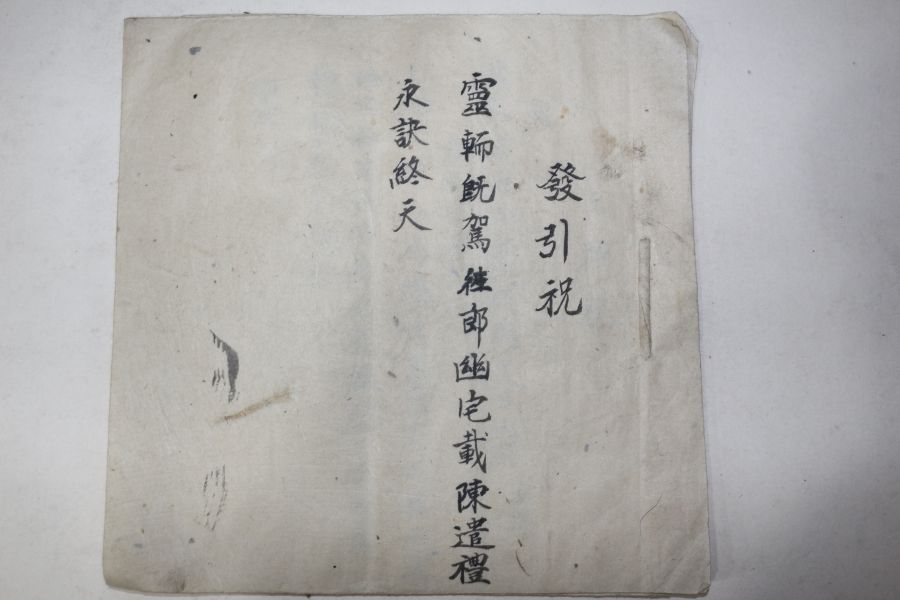 發引祝
靈輀旣駕徃郎幽宅載陳遣禮
永訣終天